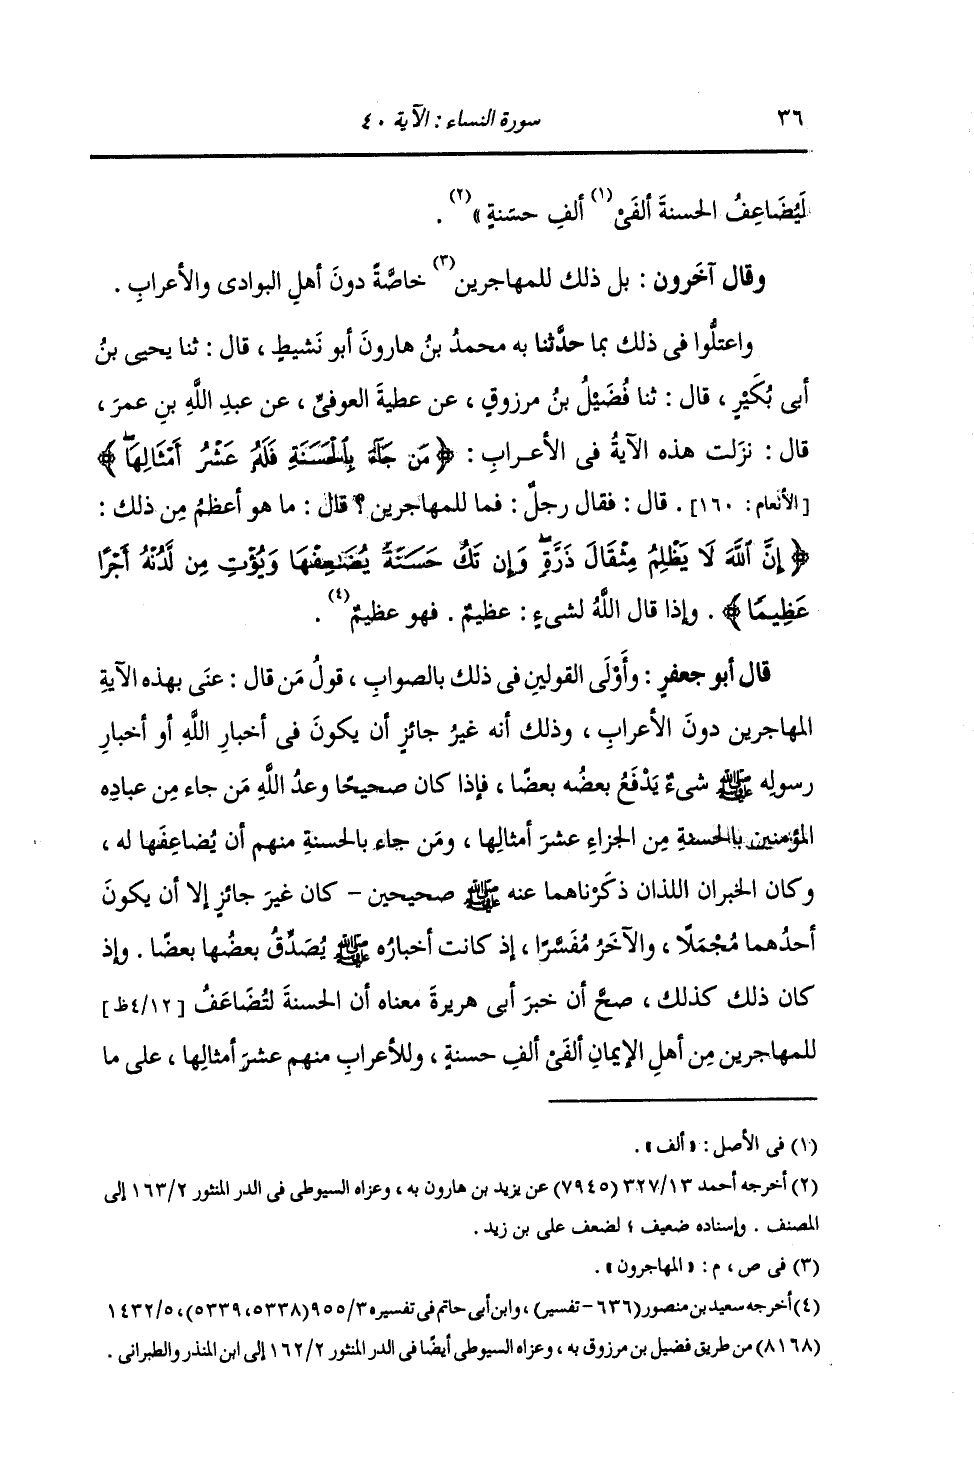 ٣٦
سورة النساء : الآية ٤٠
لَيُضَاعِفُ الحسنةَ ألفَىْ(١) ألفِ حسَنةٍ »(٢) .
وقال آخَرون : بل ذلك للمهاجرين(٣) خاصَّةً دونَ أهلِ البوادى والأعرابِ .
واعتلُّوا فى ذلك بما حدَّثنا به محمدُ بنُ هارونَ أبو نَشيطٍ ، قال : ثنا يحيى بنُ
أبى بُكَيْرٍ ، قال : ثنا فُضَيْلُ بنُ مرزوقٍ ، عن عطيةَ العوفىِّ ، عن عبدِ اللَّهِ بنِ عمرَ ،
قال : نزَلت هذه الآيةُ فى الأعـرابِ : ﴿ مَن جَآءَ بِٱلْحَسَنَةِ فَلَهُ عَشْرُ أَمْثَالِهَاۖ ﴾
[الأنعام : ١٦٠] . قال : فقال رجلٌ : فما للمهاجرين ؟ قال : ما هو أعظمُ مِن ذلك :
﴿ إِنَّ ٱللَّهَ لَا يَظْلِمُ مِثْقَالَ ذَرَّةٍۖ وَإِن تَكُ حَسَنَةً يُضَٰعِفْهَا وَيُؤْتِ مِن لَّدُنْهُ أَجْرًا
عَظِيمًا ﴾ . وإذا قال اللَّهُ لشىءٍ : عظيمٌ . فهو عظيمٌ(٤) .
قال أبو جعفرٍ : وأَوْلَى القولينِ فى ذلك بالصوابِ ، قولُ مَن قال : عنَى بهذه الآيةِ
المهاجرين دونَ الأعرابِ ، وذلك أنه غيرُ جائزٍ أن يكونَ فى أخبارِ اللَّهِ أو أخبارِ
رسولِه ﷺ شىءٌ يَدْفَعُ بعضُه بعضًا ، فإذا كان صحيحًا وعدُ اللَّهِ مَن جاء مِن عبادِه
المؤمنين بالحسنةِ مِن الجزاءِ عشرَ أمثالِها ، ومَن جاء بالحسنةِ منهم أن يُضاعِفَها له ،
وكان الخبران اللذان ذكَرْناهما عنه ﷺ صحيحين - كان غيرَ جائزٍ إلا أن يكونَ
أحدُهما مُجْمَلًا ، والآخَرُ مُفَسَّرًا ، إذ كانت أخبارُه ﷺ يُصَدِّقُ بعضُها بعضًا . وإذ
كان ذلك كذلك ، صحَّ أن خبرَ أبى هريرةَ معناه أن الحسنةَ لتُضَاعَفُ [٤/١٢ظ]
للمهاجرين مِن أهلِ الإيمانِ ألفَىْ ألفِ حسنةٍ ، وللأعرابِ منهم عشرَ أمثالِها ، على ما
(١) فى الأصل : « ألف » .
(٢) أخرجه أحمد ٣٢٧/١٣ (٧٩٤٥) عن يزيد بن هارون به ، وعزاه السيوطى فى الدر المنثور ١٦٣/٢ إلى
المصنف . وإسناده ضعيف ؛ لضعف على بن زيد .
(٣) فى ص ، م : « المهاجرون » .
(٤) أخرجه سعيد بن منصور (٦٣٦ - تفسير) ، وابن أبى حاتم فى تفسيره ٩٥٥/٣ (٥٣٣٨، ٥٣٣٩)، ١٤٣٢/٥
(٨١٦٨) من طريق فضيل بن مرزوق به ، وعزاه السيوطى أيضًا فى الدر المنثور ١٦٢/٢ إلى ابن المنذر والطبرانى .